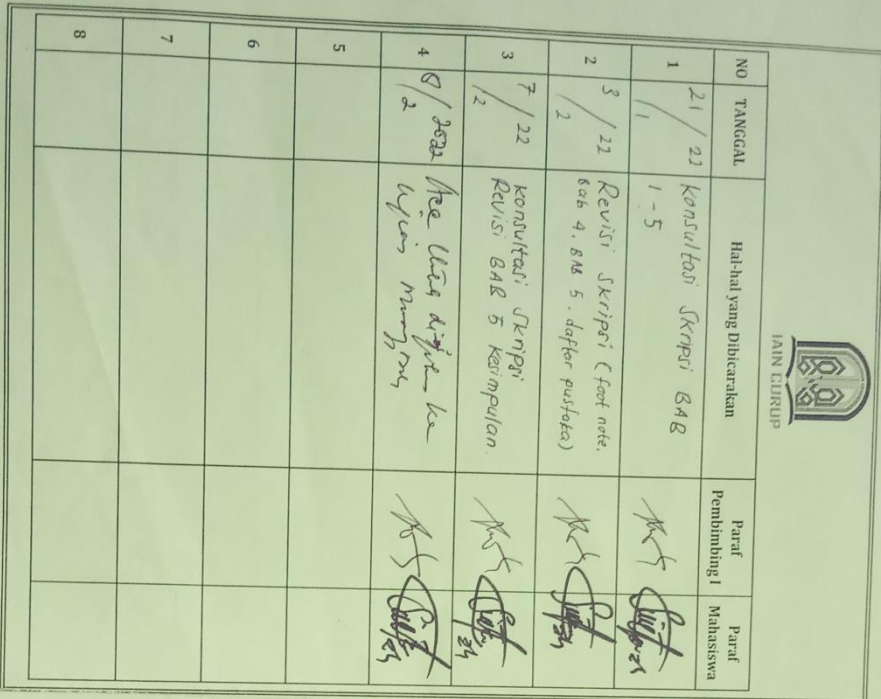 IAIN CURUP
NO TANGGAL Hal-hal yang Dibicarakan Paraf Pembimbing I Paraf Mahasiswa
1 21/1 22 Konsultasi Skripsi BAB
1 - 5
2 3/2 22 Revisi Skripsi (foot note,
Bab 4. BAB 5. daftar pustaka)
3 7/2 22 Konsultasi Skripsi
Revisi BAB 5 kesimpulan.
4 /2 2022 Acc untuk ke
ujian
5
6
7
8